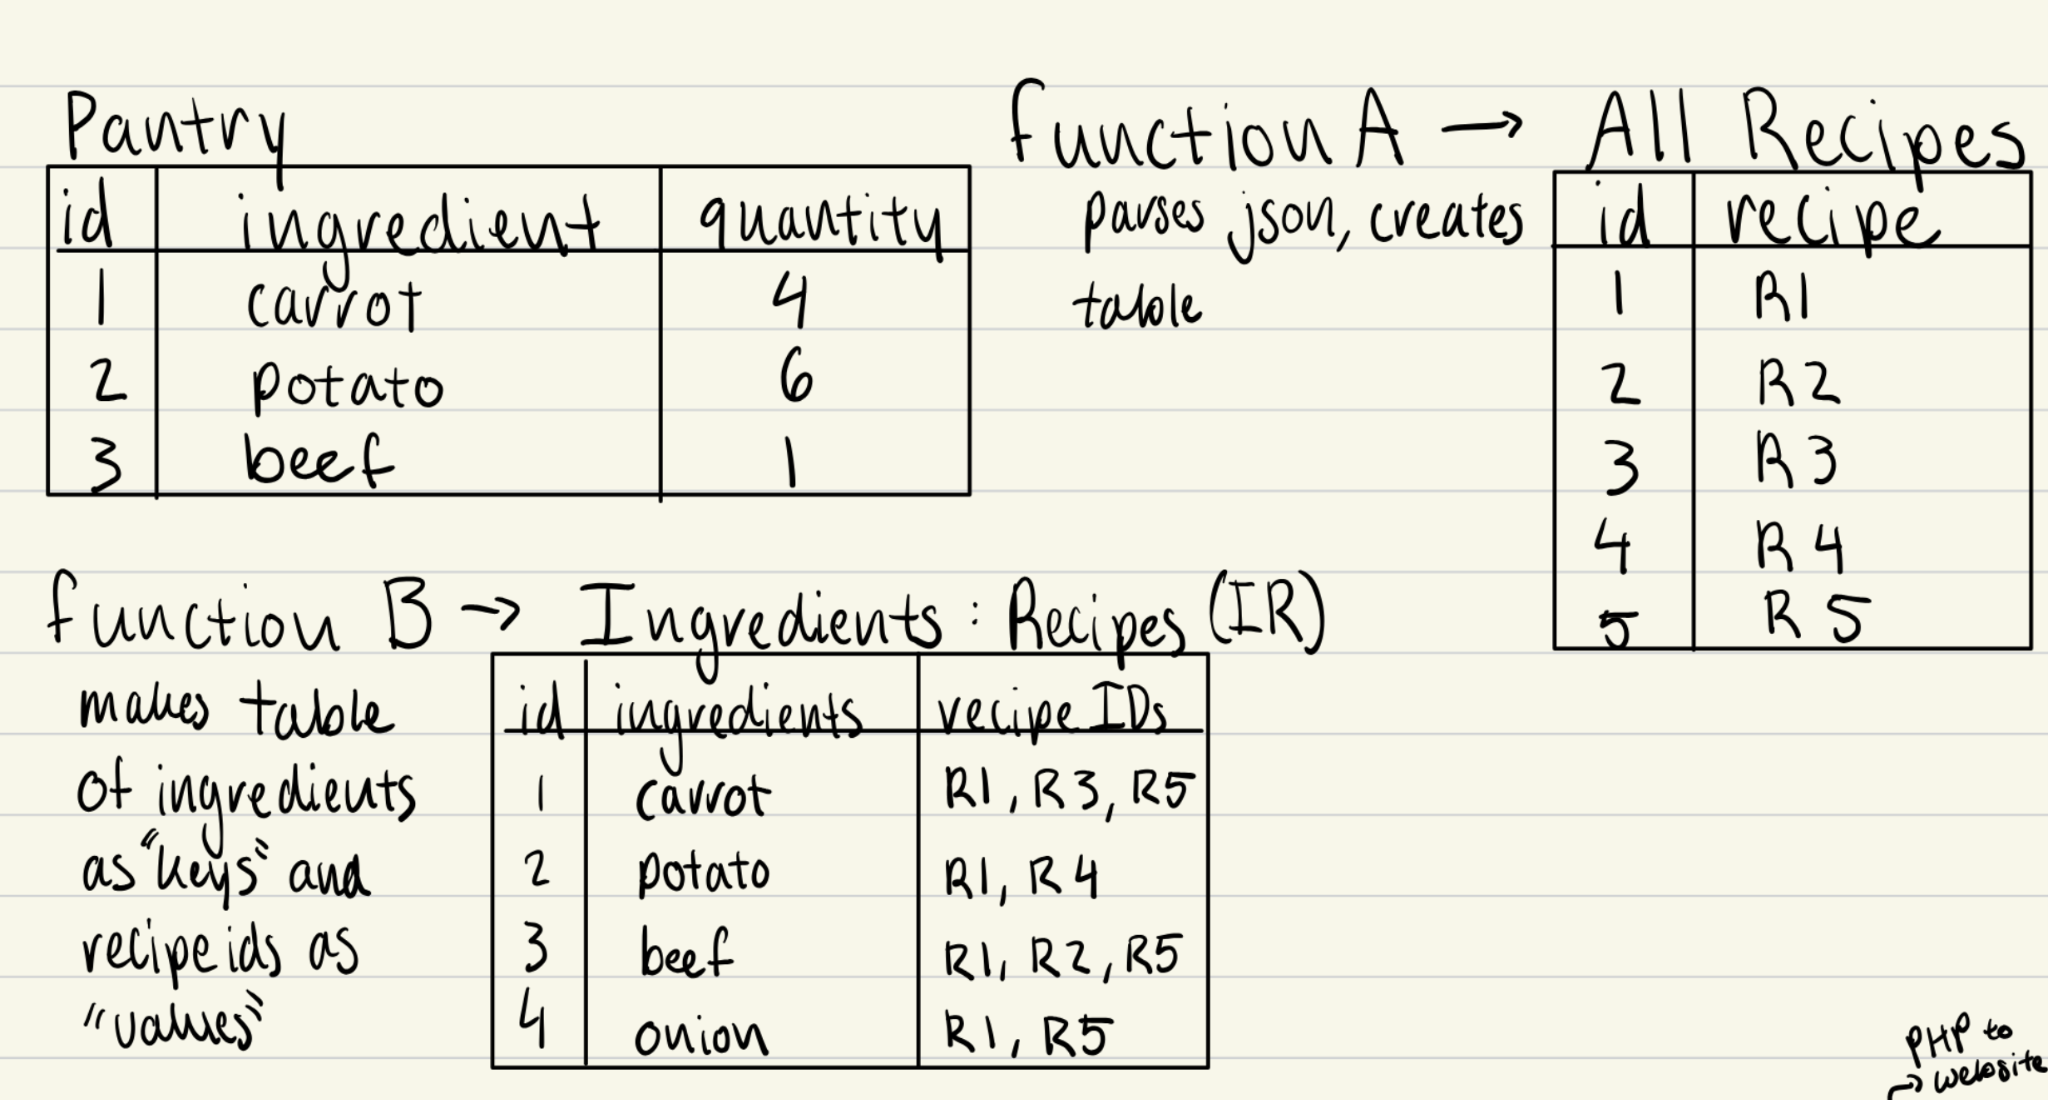 Pantry
id ingredient quantity
1 carrot 4
2 potato 6
3 beef 1
function A → All Recipes
parses json, creates
table
id recipe
1 R1
2 R2
3 R3
4 R4
5 R5
function B → Ingredients : Recipes (IR)
makes table
of ingredients
as "keys" and
recipe ids as
"values"
id ingredients recipe IDs
1 carrot R1, R3, R5
2 potato R1, R4
3 beef R1, R2, R5
4 onion R1, R5
PHP to
→ website